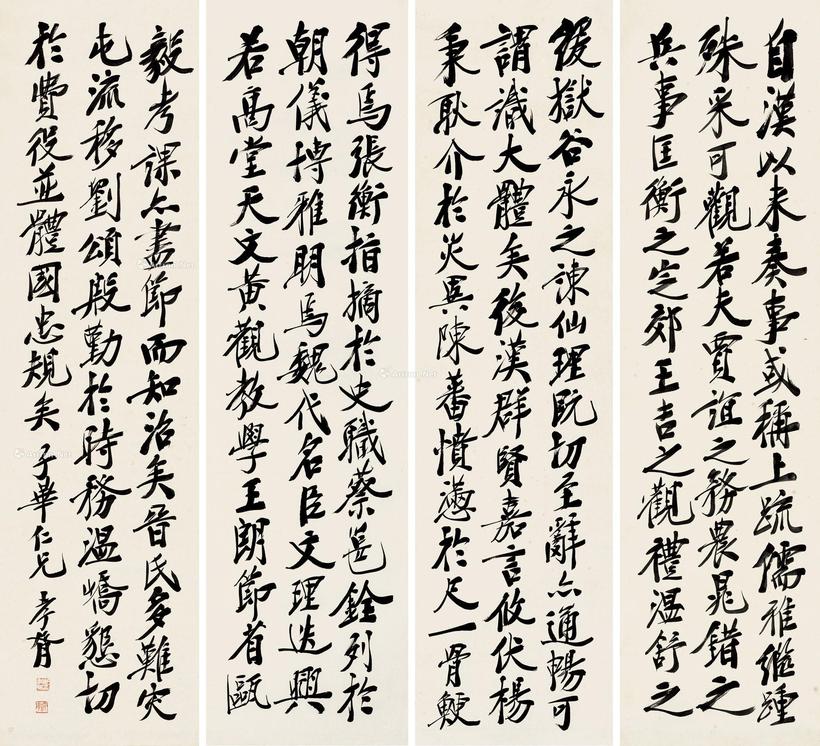 自漢以来奏事或稱上疏儒雅繼踵
殊采可觀若夫賈誼之務農晁錯之
兵事匡衡之定郊王吉之觀禮溫舒之
緩獄谷永之諫仙理既切至辭亦通暢可
謂識大體矣後漢群賢嘉言攸伏楊
秉耿介於災異陳蕃憤懣於尺一骨鯁
得焉張衡指摘於史職蔡邕銓列於
朝儀博雅明焉魏代名臣文理迭興
若高堂天文黃觀教學王朗節省甄
毅考課亦盡節而知治矣晉氏多難災
屯流移劉頌殷勤於時務溫嶠懇切
於費役並體國忠規矣 子華仁兄 孝胥